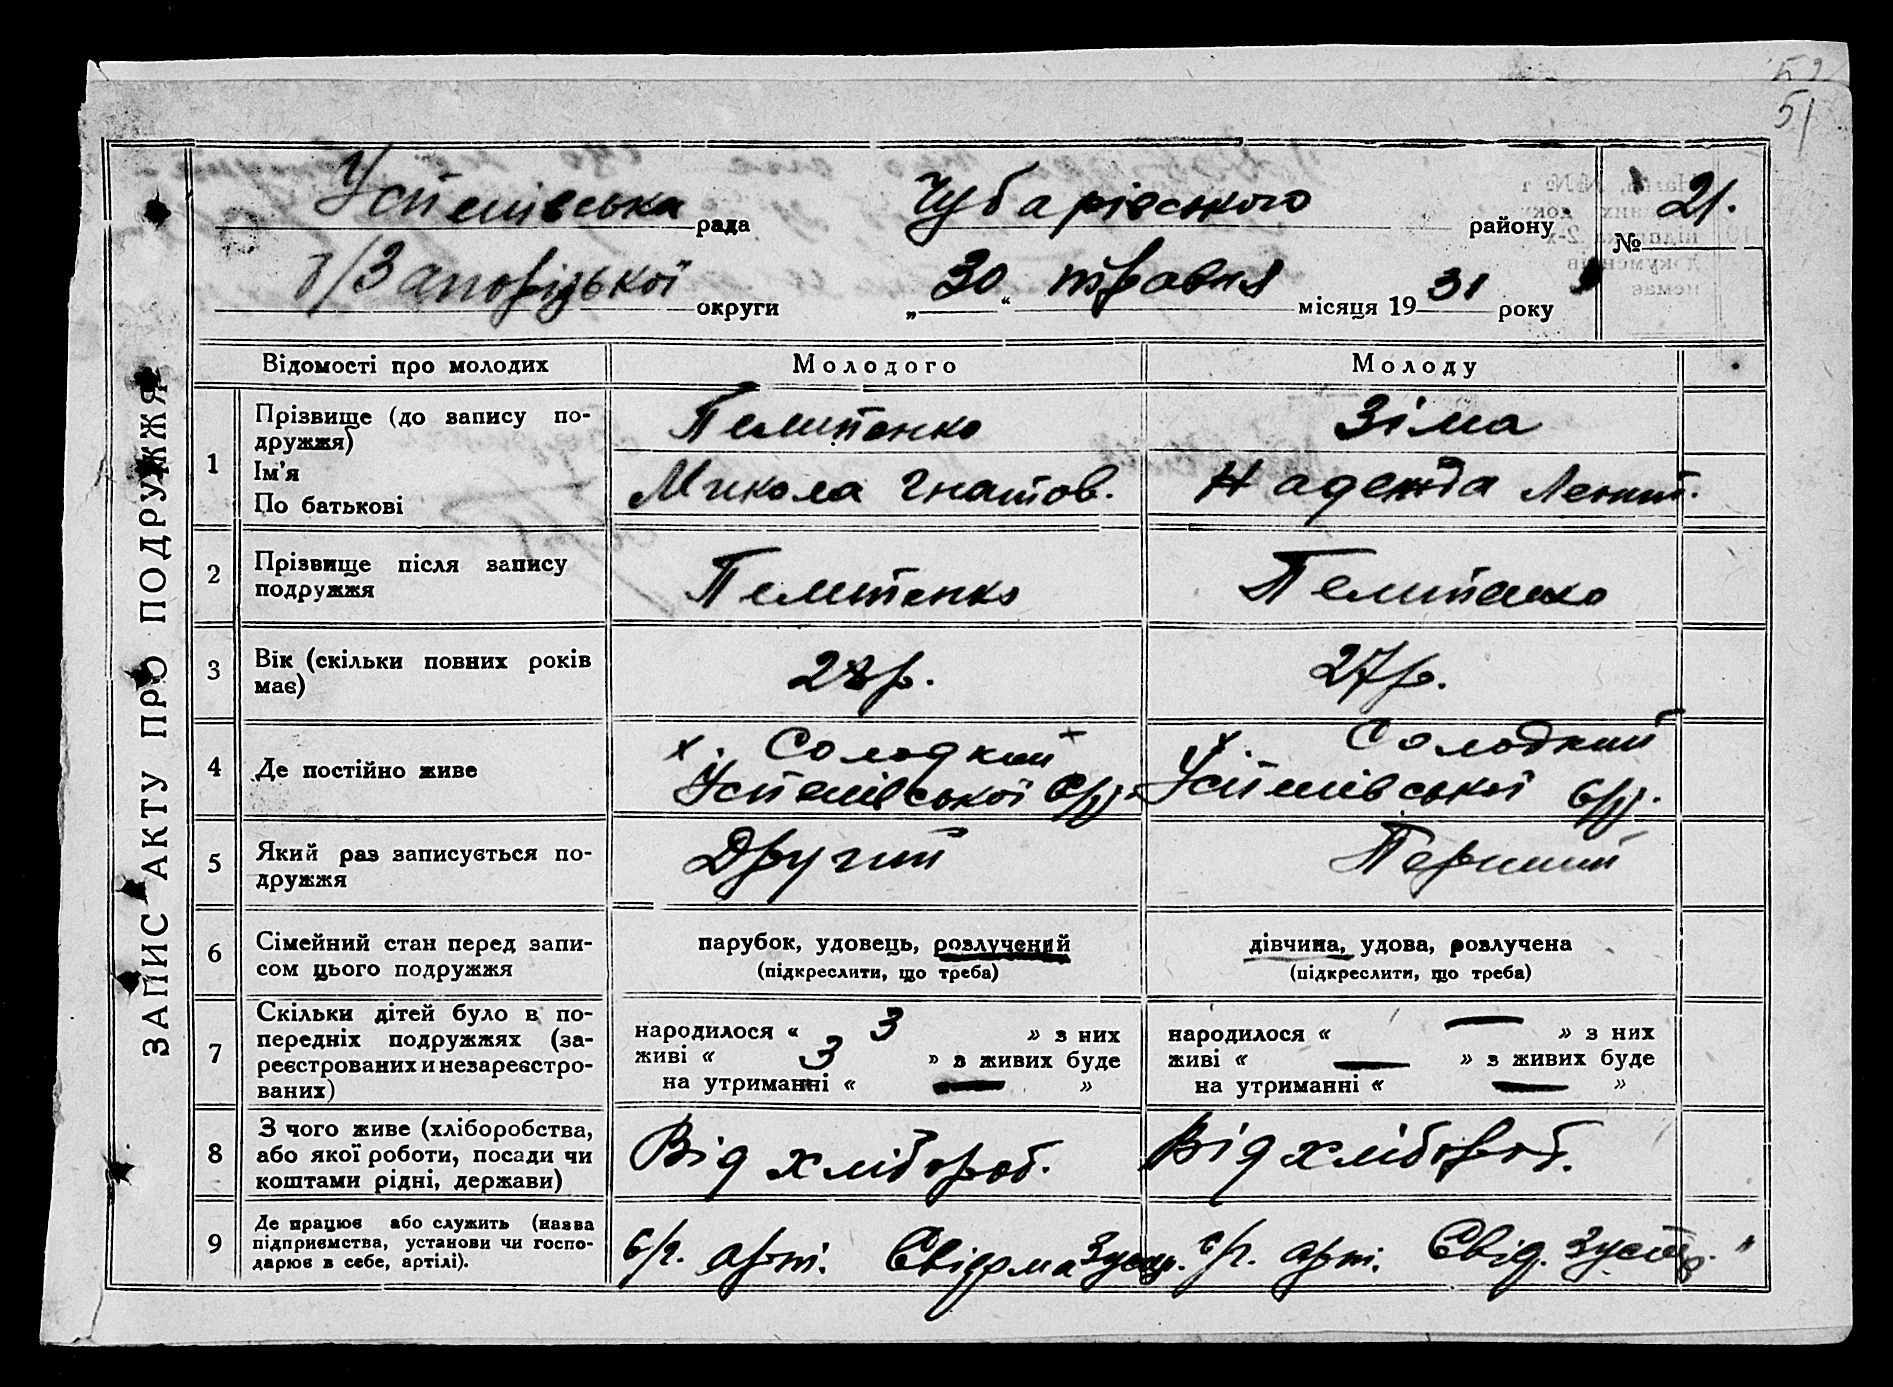 52
51
Успенівська рада Чубарівського району № 21.
б/Запорізької округи „30“ травня місяця 1931 року
ЗАПИС АКТУ ПРО ПОДРУЖЖЯ
Відомості про молодих Молодого Молоду
1 Прізвище (до запису по-
дружжя) Пелипенко Зіма
Ім'я
По батькові Микола Гнатов. Надежда Леонт.
2 Прізвище після запису
подружжя Пелипенко Пелипенко
3 Вік (скільки повних років
має) 28 р. 27 р.
4 Де постійно живе х. Солодкий х. Солодкий
Успенівської с/р. Успенівської с/р.
5 Який раз записується по-
дружжя Другий Перший
6 Сімейний стан перед запи-
сом цього подружжя
парубок, удовець, розлучений дівчина, удова, розлучена
(підкреслити, що треба) (підкреслити, що треба)
7 Скільки дітей було в по-
передніх подружжях (за-
реєстрованих и незареєстро-
ваних)
народилося « 3 » з них народилося « — » з них
живі « 3 » з живих буде живі « — » з живих буде
на утриманні « — » на утриманні « — »
8 З чого живе (хліборобства,
або якої роботи, посади чи
коштами рідні, держави) Від хлібороб. Від хлібороб.
9 Де працює або служить (назва
підприємства, установи чи госпо-
дарює в себе, артілі). с/г. арт. с/г. арт. Свід. Зустр.